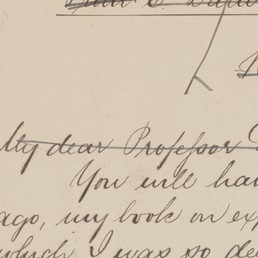 My dear Professor
You will hav
ago, my book on ex
which I was so de